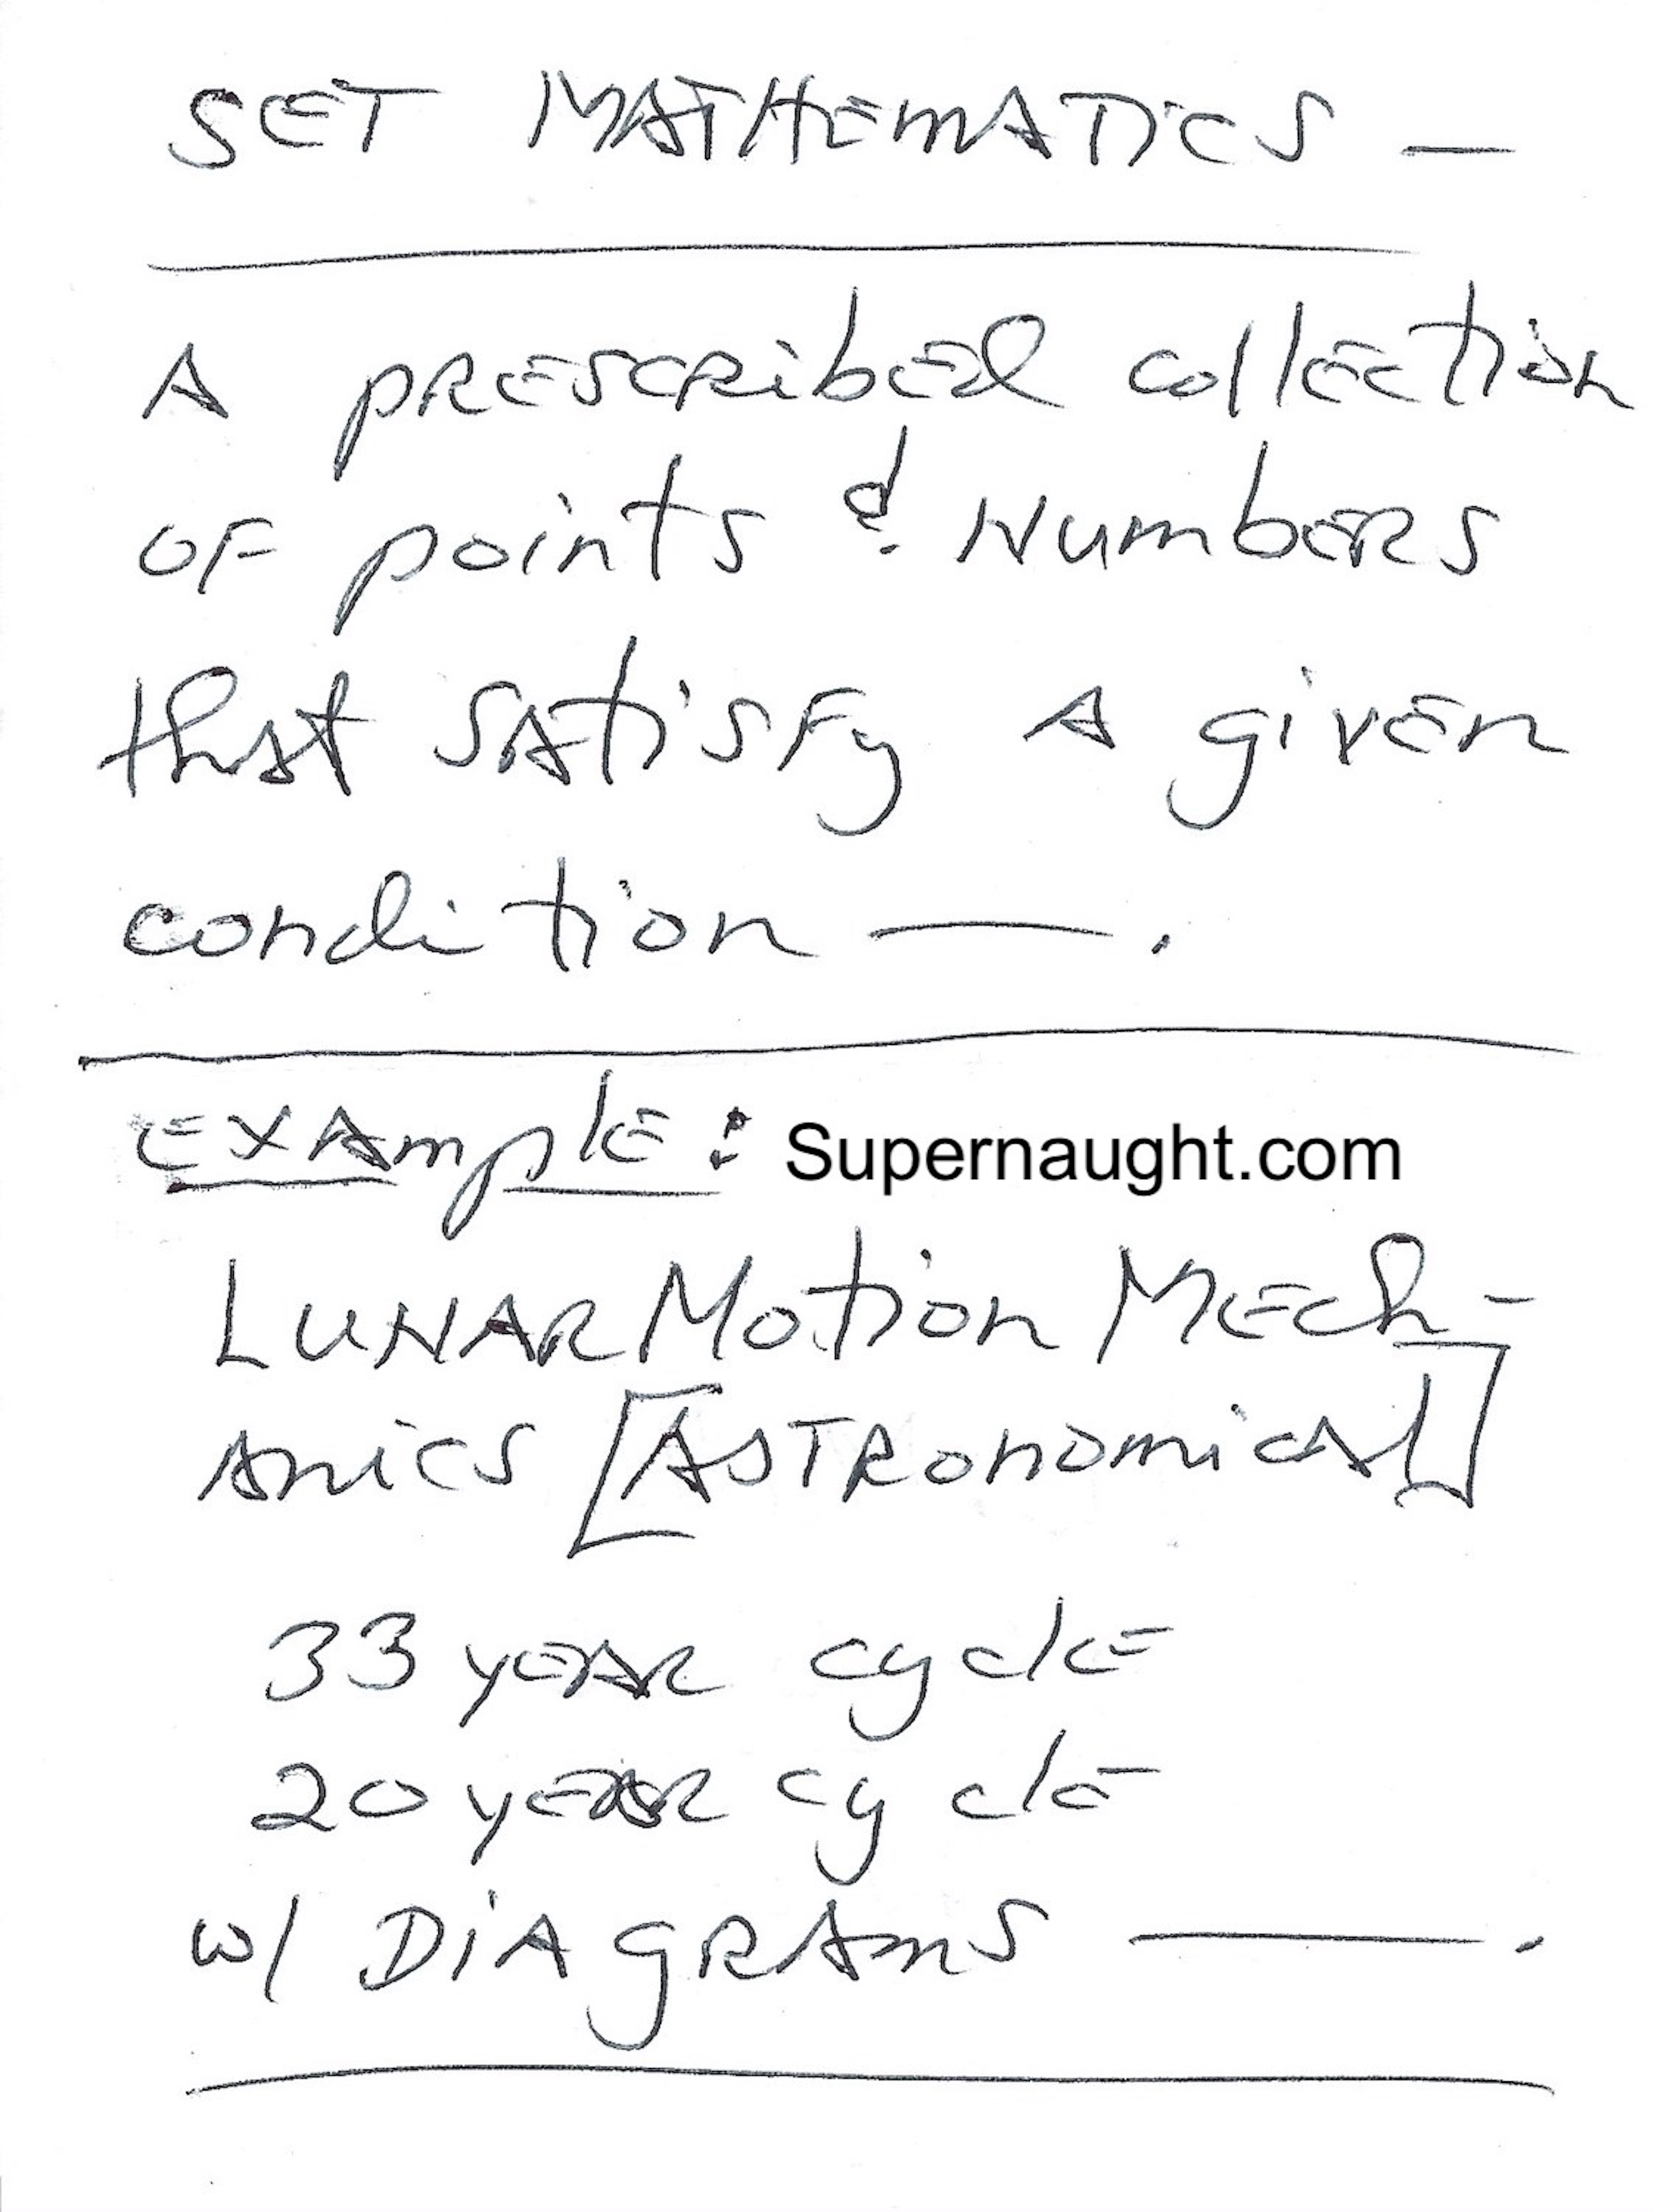 SET MATHEMATICS —
A prescribed collection
of points & Numbers
that satisfy A given
condition — .
Example: Supernaught.com
Lunar Motion Mech-
anics [Astronomical]
33 year cycle
20 year cycle
w/ Diagrams — .